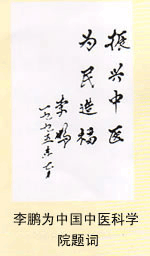 振兴中医
为民造福
李鹏
一九九五年
李鹏为中国中医科学
院题词